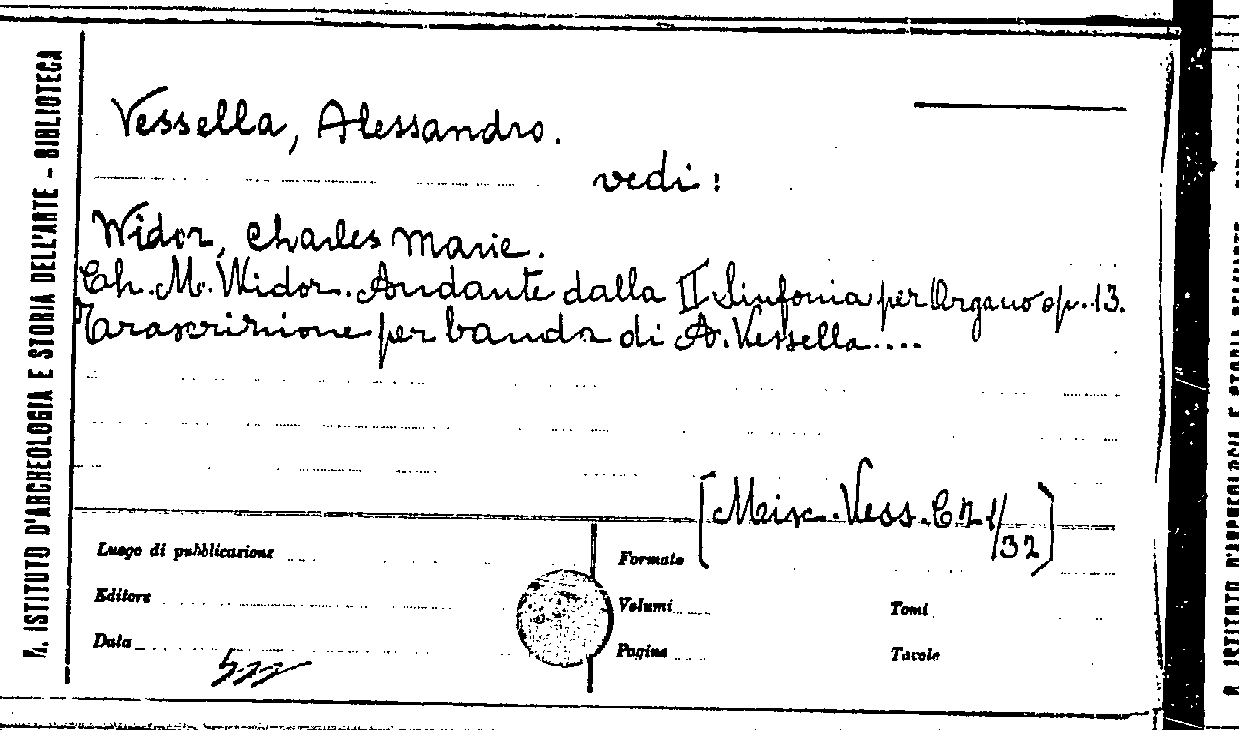 R. ISTITUTO D'ARCHEOLOGIA E STORIA DELL'ARTE - BIBLIOTECA
Vessella, Alessandro.
vedi:
Widor, Charles Marie.
Ch. M. Widor. Andante dalla II Sinfonia per Organo op. 13.
Trascrizione per banda di A. Vessella....
[Misc. Vess. 1/32]
Luogo di pubblicazione
Formato
Editore
Volumi
Tomi
Data
Pagine
Tavole